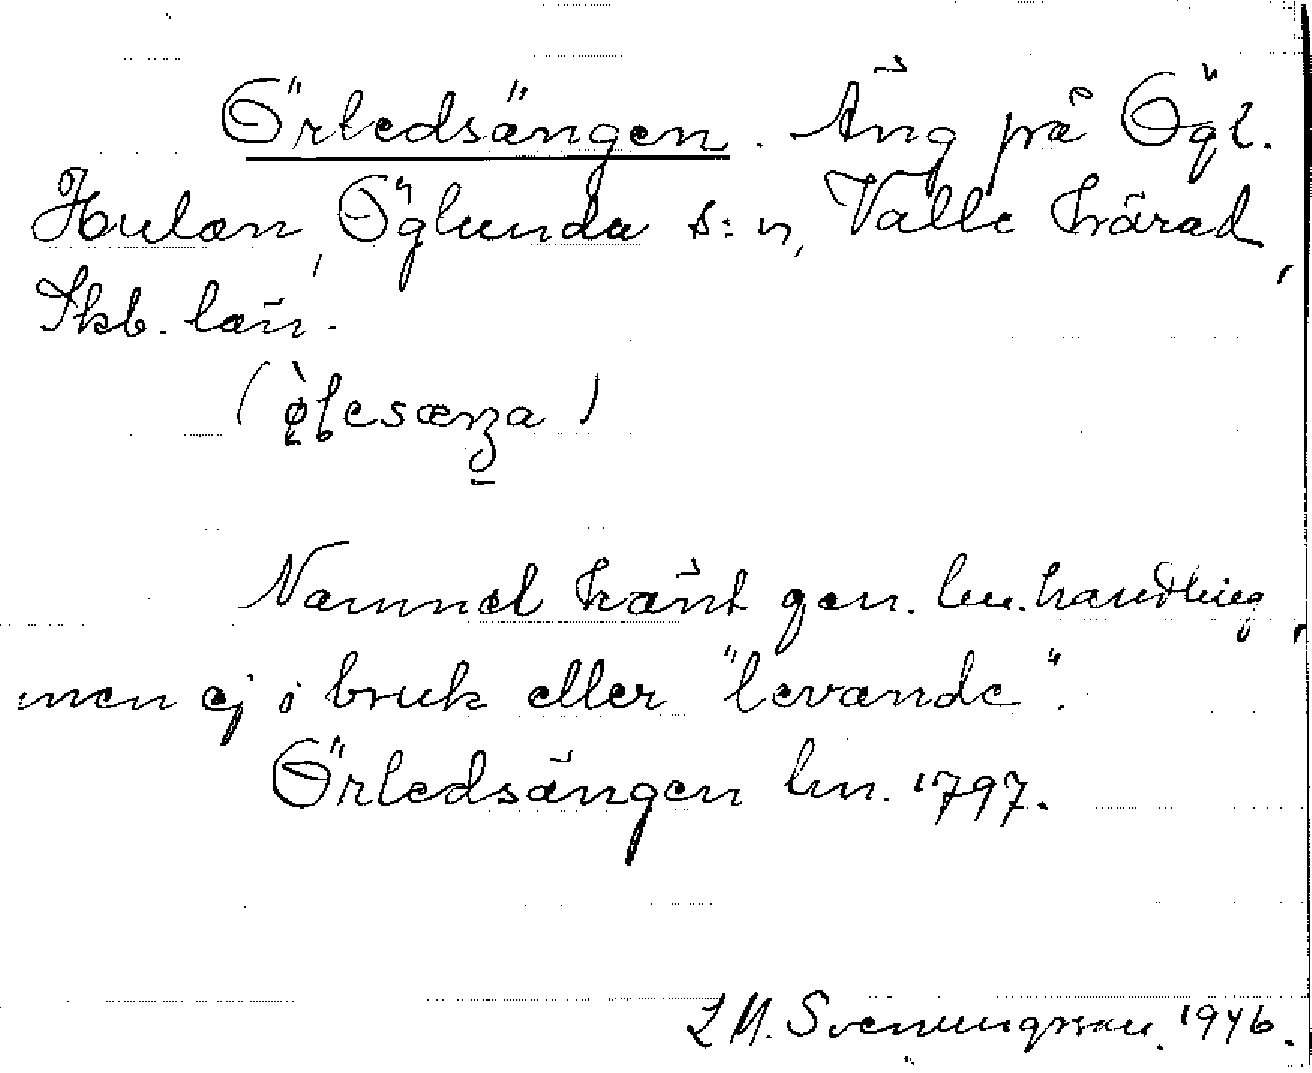 Örledsängen. Äng på Ögl.
Hulan, Öglunda s:n, Valle härad,
Skb. län.
Namnet känt gen. lm. handling,
men ej i bruk eller "levande".
Örledsängen lm. 1797.
Svenungsson. 1946.